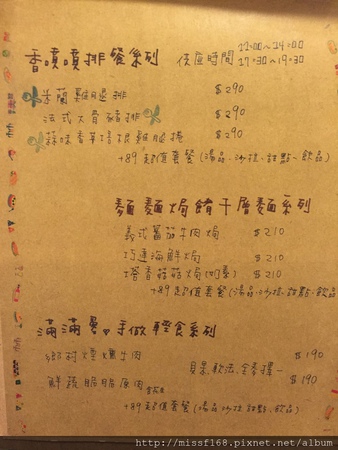 香噴噴排餐系列 供應時間 11:00~14:00
17:30~19:30
米蘭雞腿排 $290
法式大骨豬排 $290
蒜味香草嫩雞腿捲 $290
+89 超值套餐(湯品、沙拉、甜點、飲品)
麵麵焗餚千層麵系列
義式蕃茄牛肉焗 $210
巧達海鮮焗 $210
塔香菇菇焗(奶素) $210
+89超值套餐(湯品、沙拉、甜點、飲品)
滿滿 手做輕食系列
鄉村燻牛肉 $190
貝果、軟法、全麥擇一
鮮蔬 $190
+89超值套餐(湯品、沙拉、甜點、飲品)
http://missf168.pixnet.net/album